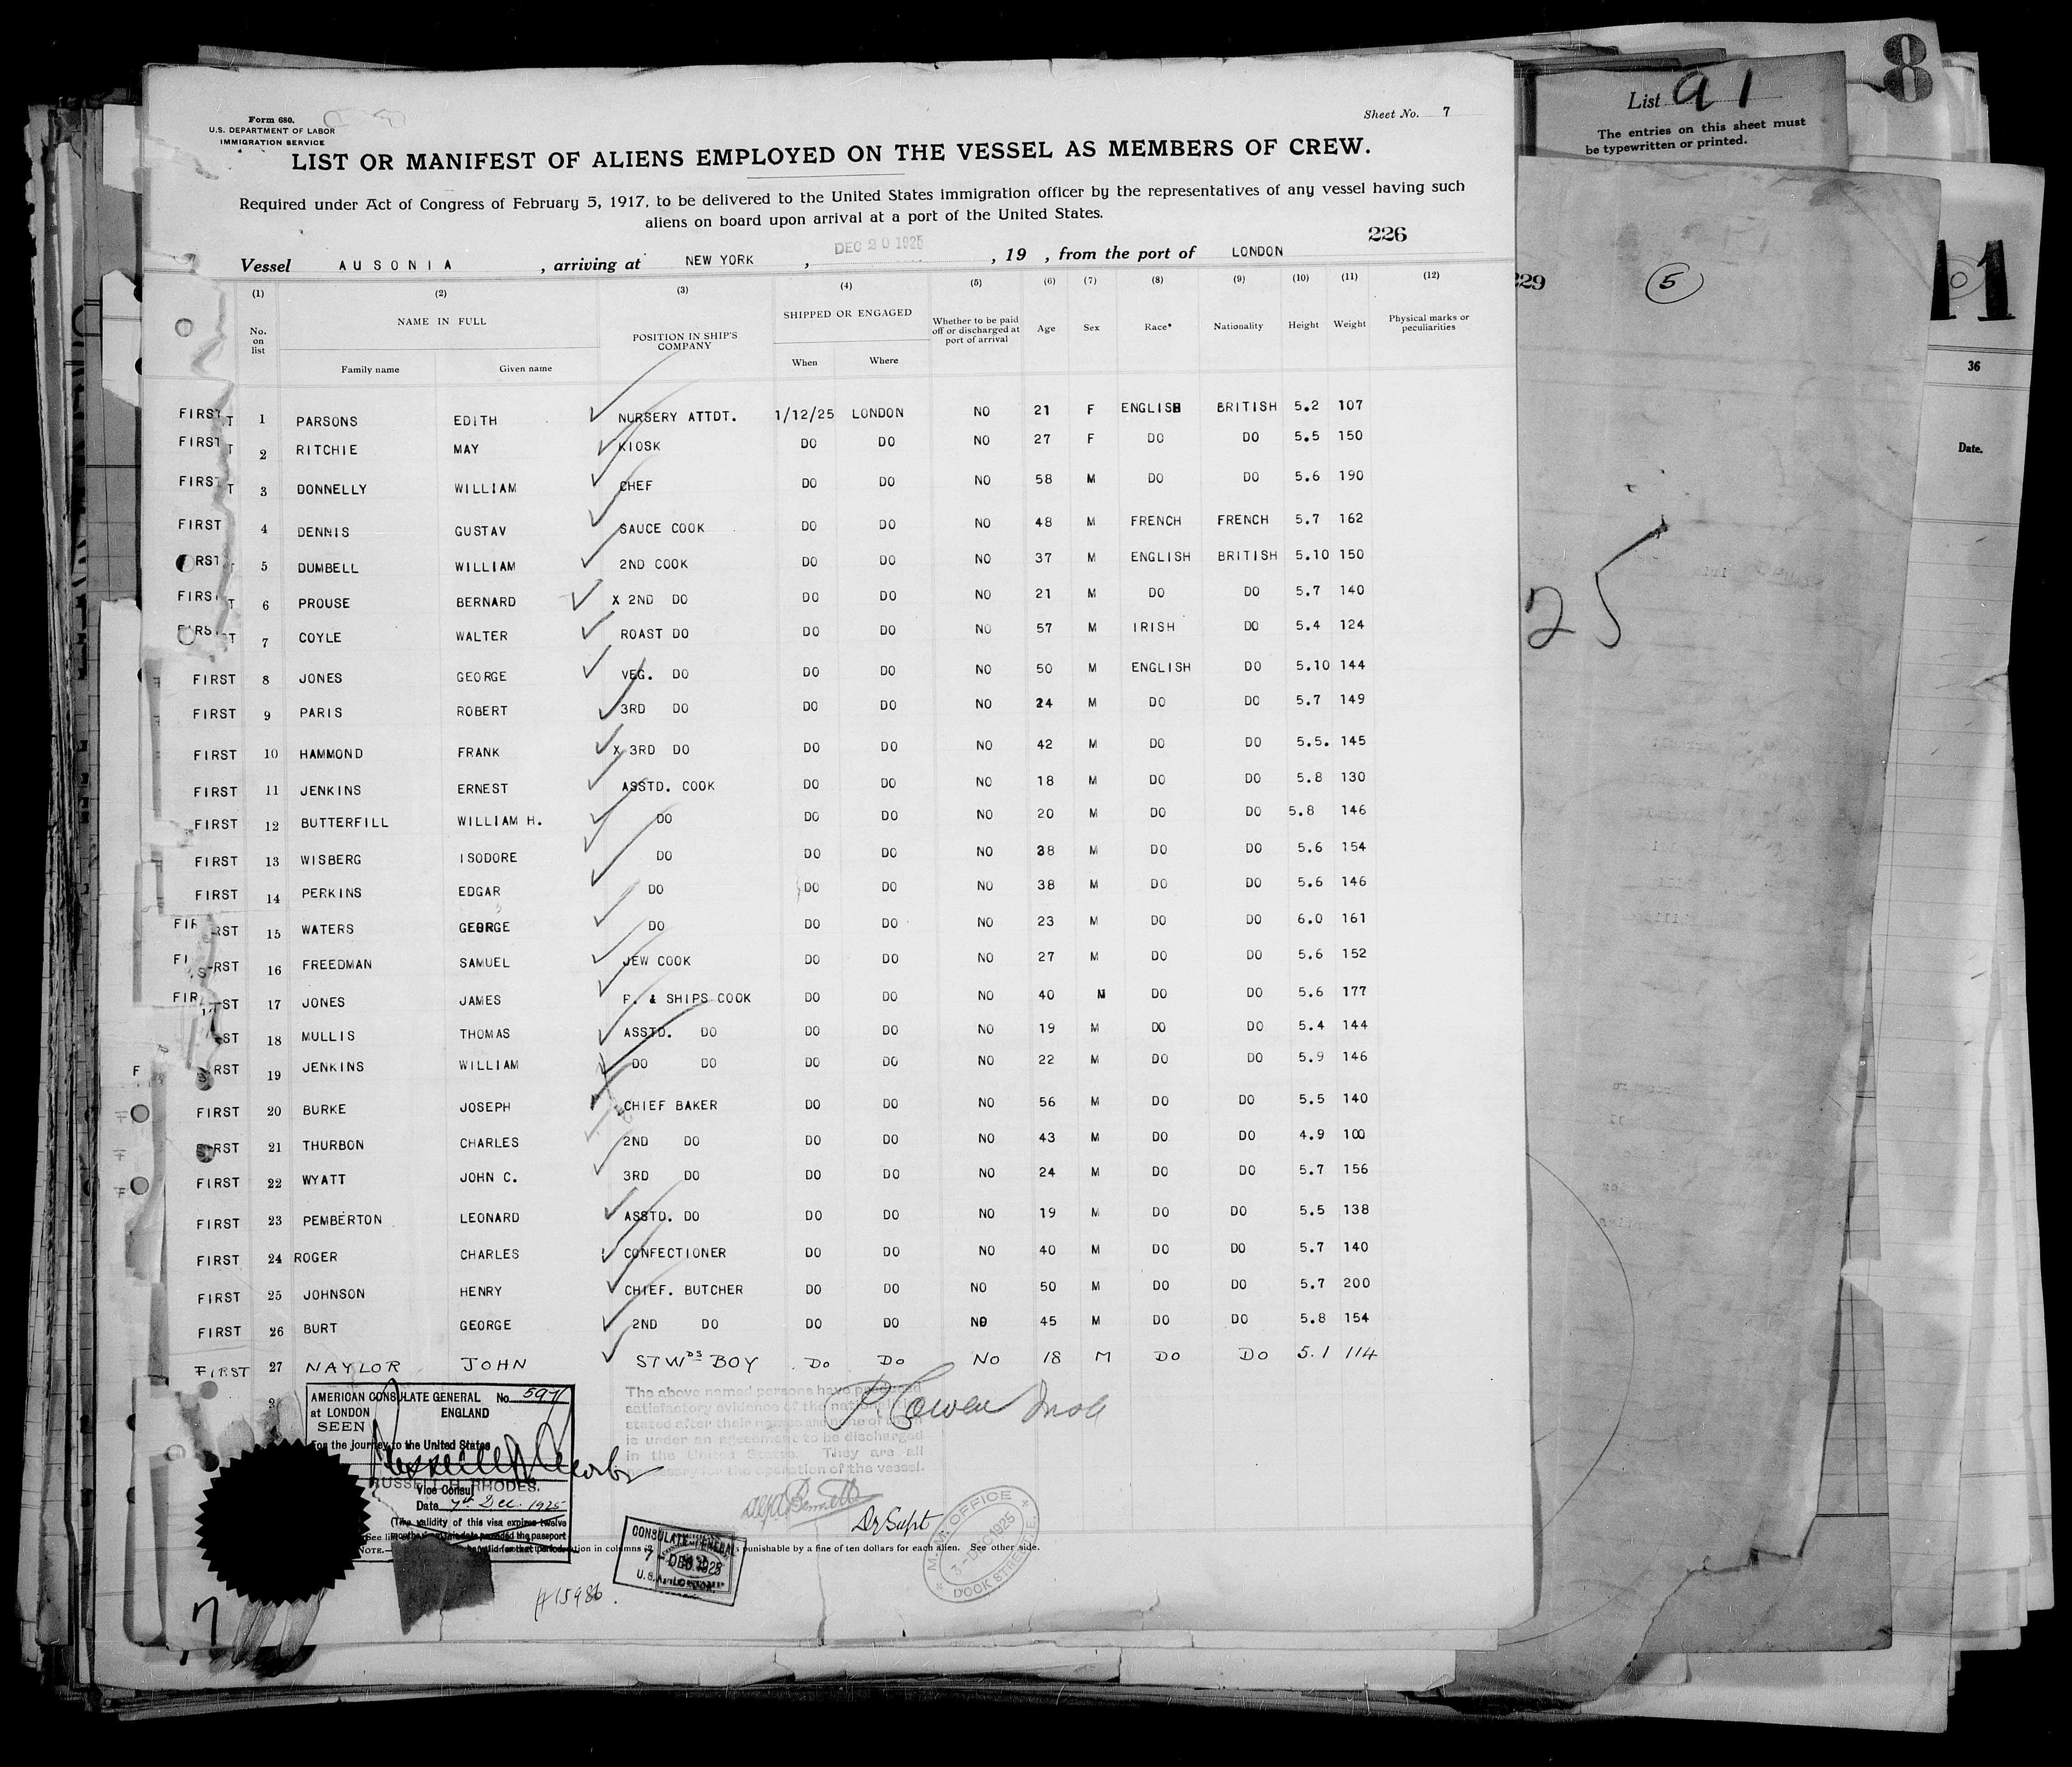 Form 680.
U.S. DEPARTMENT OF LABOR
IMMIGRATION SERVICE
Sheet No. 7
LIST OR MANIFEST OF ALIENS EMPLOYED ON THE VESSEL AS MEMBERS OF CREW.
Required under Act of Congress of February 5, 1917, to be delivered to the United States immigration officer by the representatives of any vessel having such
aliens on board upon arrival at a port of the United States.
226
Vessel AUSONIA, arriving at NEW YORK, DEC 20 1925, 19 , from the port of LONDON
(1) (2) (3) (4) (5) (6) (7) (8) (9) (10) (11) (12)
No. on list NAME IN FULL Family name Given name POSITION IN SHIP'S COMPANY SHIPPED OR ENGAGED When Where Whether to be paid off or discharged at port of arrival Age Sex Race* Nationality Height Weight Physical marks or peculiarities
FIRST 1 PARSONS EDITH NURSERY ATTDT. 1/12/25 LONDON NO 21 F ENGLISH BRITISH 5.2 107
FIRST 2 RITCHIE MAY KIOSK DO DO NO 27 F DO DO 5.5 150
FIRST 3 DONNELLY WILLIAM CHEF DO DO NO 58 M DO DO 5.6 190
FIRST 4 DENNIS GUSTAV SAUCE COOK DO DO NO 48 M FRENCH FRENCH 5.7 162
RST 5 DUMBELL WILLIAM 2ND COOK DO DO NO 37 M ENGLISH BRITISH 5.10 150
FIRST 6 PROUSE BERNARD X 2ND DO DO DO NO 21 M DO DO 5.7 140
FIRST 7 COYLE WALTER ROAST DO DO DO NO 57 M IRISH DO 5.4 124
FIRST 8 JONES GEORGE VEG. DO DO DO NO 50 M ENGLISH DO 5.10 144
FIRST 9 PARIS ROBERT 3RD DO DO DO NO 24 M DO DO 5.7 149
FIRST 10 HAMMOND FRANK X 3RD DO DO DO NO 42 M DO DO 5.5. 145
FIRST 11 JENKINS ERNEST ASSTD. COOK DO DO NO 18 M DO DO 5.8 130
FIRST 12 BUTTERFILL WILLIAM H. DO DO DO NO 20 M DO DO 5.8 146
FIRST 13 WISBERG ISODORE DO DO DO NO 38 M DO DO 5.6 154
FIRST 14 PERKINS EDGAR DO DO DO NO 38 M DO DO 5.6 146
FIRST 15 WATERS GEORGE DO DO DO NO 23 M DO DO 6.0 161
FIRST 16 FREEDMAN SAMUEL JEW COOK DO DO NO 27 M DO DO 5.6 152
FIRST 17 JONES JAMES P. & SHIPS COOK DO DO NO 40 M DO DO 5.6 177
ST 18 MULLIS THOMAS ASSTD. DO DO DO NO 19 M DO DO 5.4 144
RST 19 JENKINS WILLIAM DO DO DO DO NO 22 M DO DO 5.9 146
FIRST 20 BURKE JOSEPH CHIEF BAKER DO DO NO 56 M DO DO 5.5 140
RST 21 THURBON CHARLES 2ND DO DO DO NO 43 M DO DO 4.9 100
FIRST 22 WYATT JOHN C. 3RD DO DO DO NO 24 M DO DO 5.7 156
FIRST 23 PEMBERTON LEONARD ASSTD. DO DO DO NO 19 M DO DO 5.5 138
FIRST 24 ROGER CHARLES CONFECTIONER DO DO NO 40 M DO DO 5.7 140
FIRST 25 JOHNSON HENRY CHIEF. BUTCHER DO DO NO 50 M DO DO 5.7 200
FIRST 26 BURT GEORGE 2ND DO DO DO NO 45 M DO DO 5.8 154
FIRST 27 NAYLOR JOHN STWDS BOY DO DO NO 18 M DO DO 5.1 114
AMERICAN CONSULATE GENERAL No.
at LONDON ENGLAND
SEEN
For the journey to the United States
RUSSELL H. RHODES.
Vice Consul
Date 7th Dec. 1925
(The validity of this visa expires twelve
The above named persons have produced
satisfactory evidence of the nationality
stated after their names and none of them
is under an agreement to be discharged
in the United States. They are all
necessary for the operation of the vessel.
P. Cowen
Dr Supt
NOTE.— in columns punishable by a fine of ten dollars for each alien. See other side.
CONSULATE GENERAL
7 - DEC 1925
U.S.A. LONDON.
M.M. OFFICE
3 - DEC 1925
DOCK STREET. E.
#15986.
7
List 91
The entries on this sheet must
be typewritten or printed.
8
229
5
11
36
Date.
25